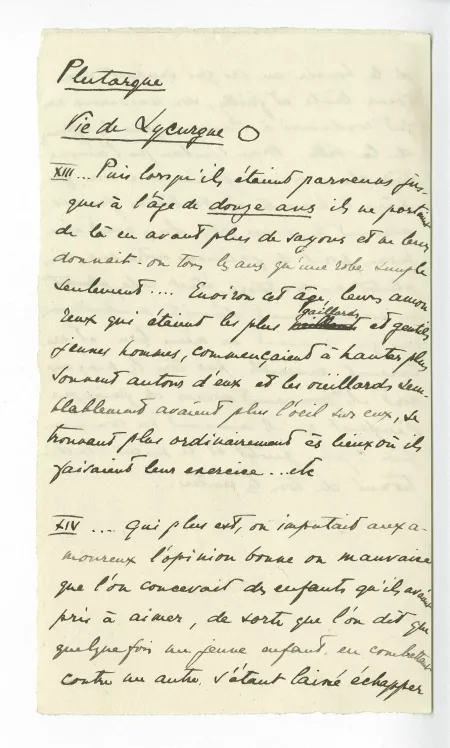 Plutarque
Vie de Lycurgue O
XIII... Puis lorsqu'ils étaient parvenus jus-
ques à l'âge de douze ans ils ne portaient
de là en avant plus de sayons et ne leur
donnait-on tous les ans qu'une robe simple
seulement.... Environ cet âge, leurs amou
reux qui étaient les plus gaillards et gentils
jeunes hommes, commençaient à hanter plus
souvent autour d'eux et les vieillards sem-
blablement avaient plus l'œil sur eux, se
trouvant plus ordinairement ès lieux où ils
faisaient leur exercice...etc
XIV .... Qui plus est, on imputait aux a-
moureux l'opinion bonne ou mauvaise
que l'on concevait des enfants qu'ils avaient
pris à aimer, de sorte que l'on dit que
quelque fois un jeune enfant, en combattant
contre un autre, s'étant laissé échapper